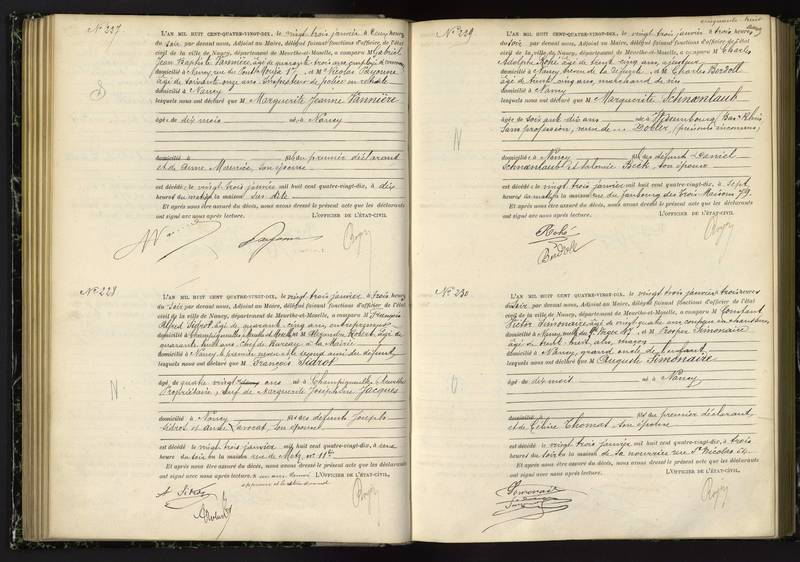 N° 227
L'AN MIL HUIT CENT QUATRE-VINGT-DIX, le vingt trois janvier à
du soir par devant nous, Adjoint au Maire, délégué faisant fonctions d'officier de l'état
civil de la ville de Nancy, département de Meurthe-et-Moselle, a comparu M Gabriel
Jean Baptiste Vannière, âgé de quarante trois ans, employé de commerce
domicilié à Nancy, rue du 17, et M Nicolas Payonne
âgé de soixante onze ans, Inspecteur de police en retraite
domicilié à Nancy
lesquels nous ont déclaré que M Marguerite Jeanne Vannière
âgée de dix mois né à Nancy
domicilié à fille du premier déclarant
et de Anne Maurice, son épouse
est décédée le vingt trois janvier mil huit cent quatre-vingt-dix, à dix
heures du matin en la maison sus dite
Et après nous être assuré du décès, nous avons dressé le présent acte que les déclarants
ont signé avec nous après lecture. L'OFFICIER DE L'ÉTAT-CIVIL
N° 228
L'AN MIL HUIT CENT QUATRE-VINGT-DIX, le vingt trois janvier à trois heures
du soir par devant nous, Adjoint au Maire, délégué faisant fonctions d'officier de l'état
civil de la ville de Nancy, département de Meurthe-et-Moselle, a comparu M François
Alfred Sidrot, âgé de quarante cinq ans, entrepreneur
domicilié à Champigneulle et M Alexandre Robert âgé de
quarante huit ans, chef de Bureau à la Mairie
domicilié à Nancy, le premier neveu et le second ami du défunt
lesquels nous ont déclaré que M François Sidrot
âgé de quatre vingt ans né à Champigneulle, Meurthe
Propriétaire, veuf de Marguerite Joséphine Jacques
domicilié à Nancy fils des défunts Joseph
Sidrot et Anne Lavocat, son épouse
est décédé le vingt trois janvier mil huit cent quatre-vingt-dix, à une
heure du soir en la maison rue de Metz, n° 11
Et après nous être assuré du décès, nous avons dressé le présent acte que les déclarants
ont signé avec nous après lecture. L'OFFICIER DE L'ÉTAT-CIVIL
N° 229
cinquante huit
L'AN MIL HUIT CENT QUATRE-VINGT-DIX, le vingt trois janvier à trois heures
du soir par devant nous, Adjoint au Maire, délégué faisant fonctions d'officier de l'état
civil de la ville de Nancy, département de Meurthe-et-Moselle, a comparu M Charles
Adolphe Rohé âgé de vingt cinq ans, ajusteur
domicilié à Nancy neveu de la défunte et M Charles Bordoll
âgé de vingt cinq ans, marchand de vin
domicilié à Nancy
lesquels nous ont déclaré que M Marguerite Schnoenlaub
âgée de soixante dix ans née à Wissembourg (Bas-Rhin)
Sans profession, veuve de ... Dobler (prénoms inconnus)
domiciliée à Nancy fille des défunts Daniel
Schnoenlaub et Salomée Beck, son épouse
est décédée le vingt trois janvier mil huit cent quatre-vingt-dix, à sept
heures du matin en la maison rue du faubourg des trois Maisons 79
Et après nous être assuré du décès, nous avons dressé le présent acte que les déclarants
ont signé avec nous après lecture. L'OFFICIER DE L'ÉTAT-CIVIL
Rohé
Bordoll
N° 230
L'AN MIL HUIT CENT QUATRE-VINGT-DIX, le vingt trois janvier à trois heures
du soir par devant nous, Adjoint au Maire, délégué faisant fonctions d'officier de l'état
civil de la ville de Nancy, département de Meurthe-et-Moselle, a comparu M Constant
Victor Simonaire âgé de vingt quatre ans coupeur en chaussures
domicilié à Nancy, et M Prosper Simonaire
âgé de trente huit ans, maçon
domicilié à Nancy, grand oncle de l'enfant
lesquels nous ont déclaré que M Auguste Simonaire
âgé de dix mois né à Nancy
domicilié à fils du premier déclarant
et de Céline Thomas son épouse
est décédé le vingt trois janvier mil huit cent quatre-vingt-dix, à trois
heures du soir en la maison de sa nourrice rue St Nicolas 54
Et après nous être assuré du décès, nous avons dressé le présent acte que les déclarants
ont signé avec nous après lecture. L'OFFICIER DE L'ÉTAT-CIVIL
Simonaire